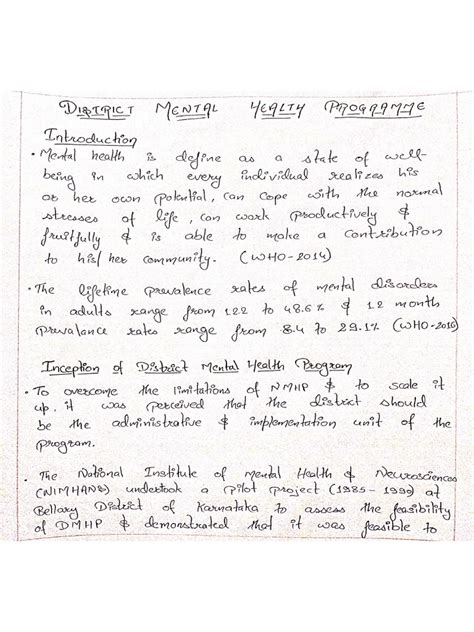 DISTRICT MENTAL HEALTY PROGRAMME
Introduction
• Mental health is define as a state of well-
being in which every individual realizes his
or her own potential, can cope with the normal
stresses of life, can work productively &
fruitfully & is able to make a contribution
to his/her community. (WHO-2014)
• The lifetime prevalence rates of mental disorders
in adults range from 12.2 to 48.6% & 12 month
prevalance rates range from 8.4 to 29.1% (WHO-2016)
Inception of District Mental Health Program
• To overcome the limitations of NMHP & to scale it
up. it was perceived that the district should
be the administrative & implementation unit of the
program.
• The National Institute of Mental Health & Neurosciences
(NIMHANS) undertook a pilot project (1985-1990) at
Bellary District of Karnataka to assess the feasibility
of DMHP & demonstrated that it was feasible to